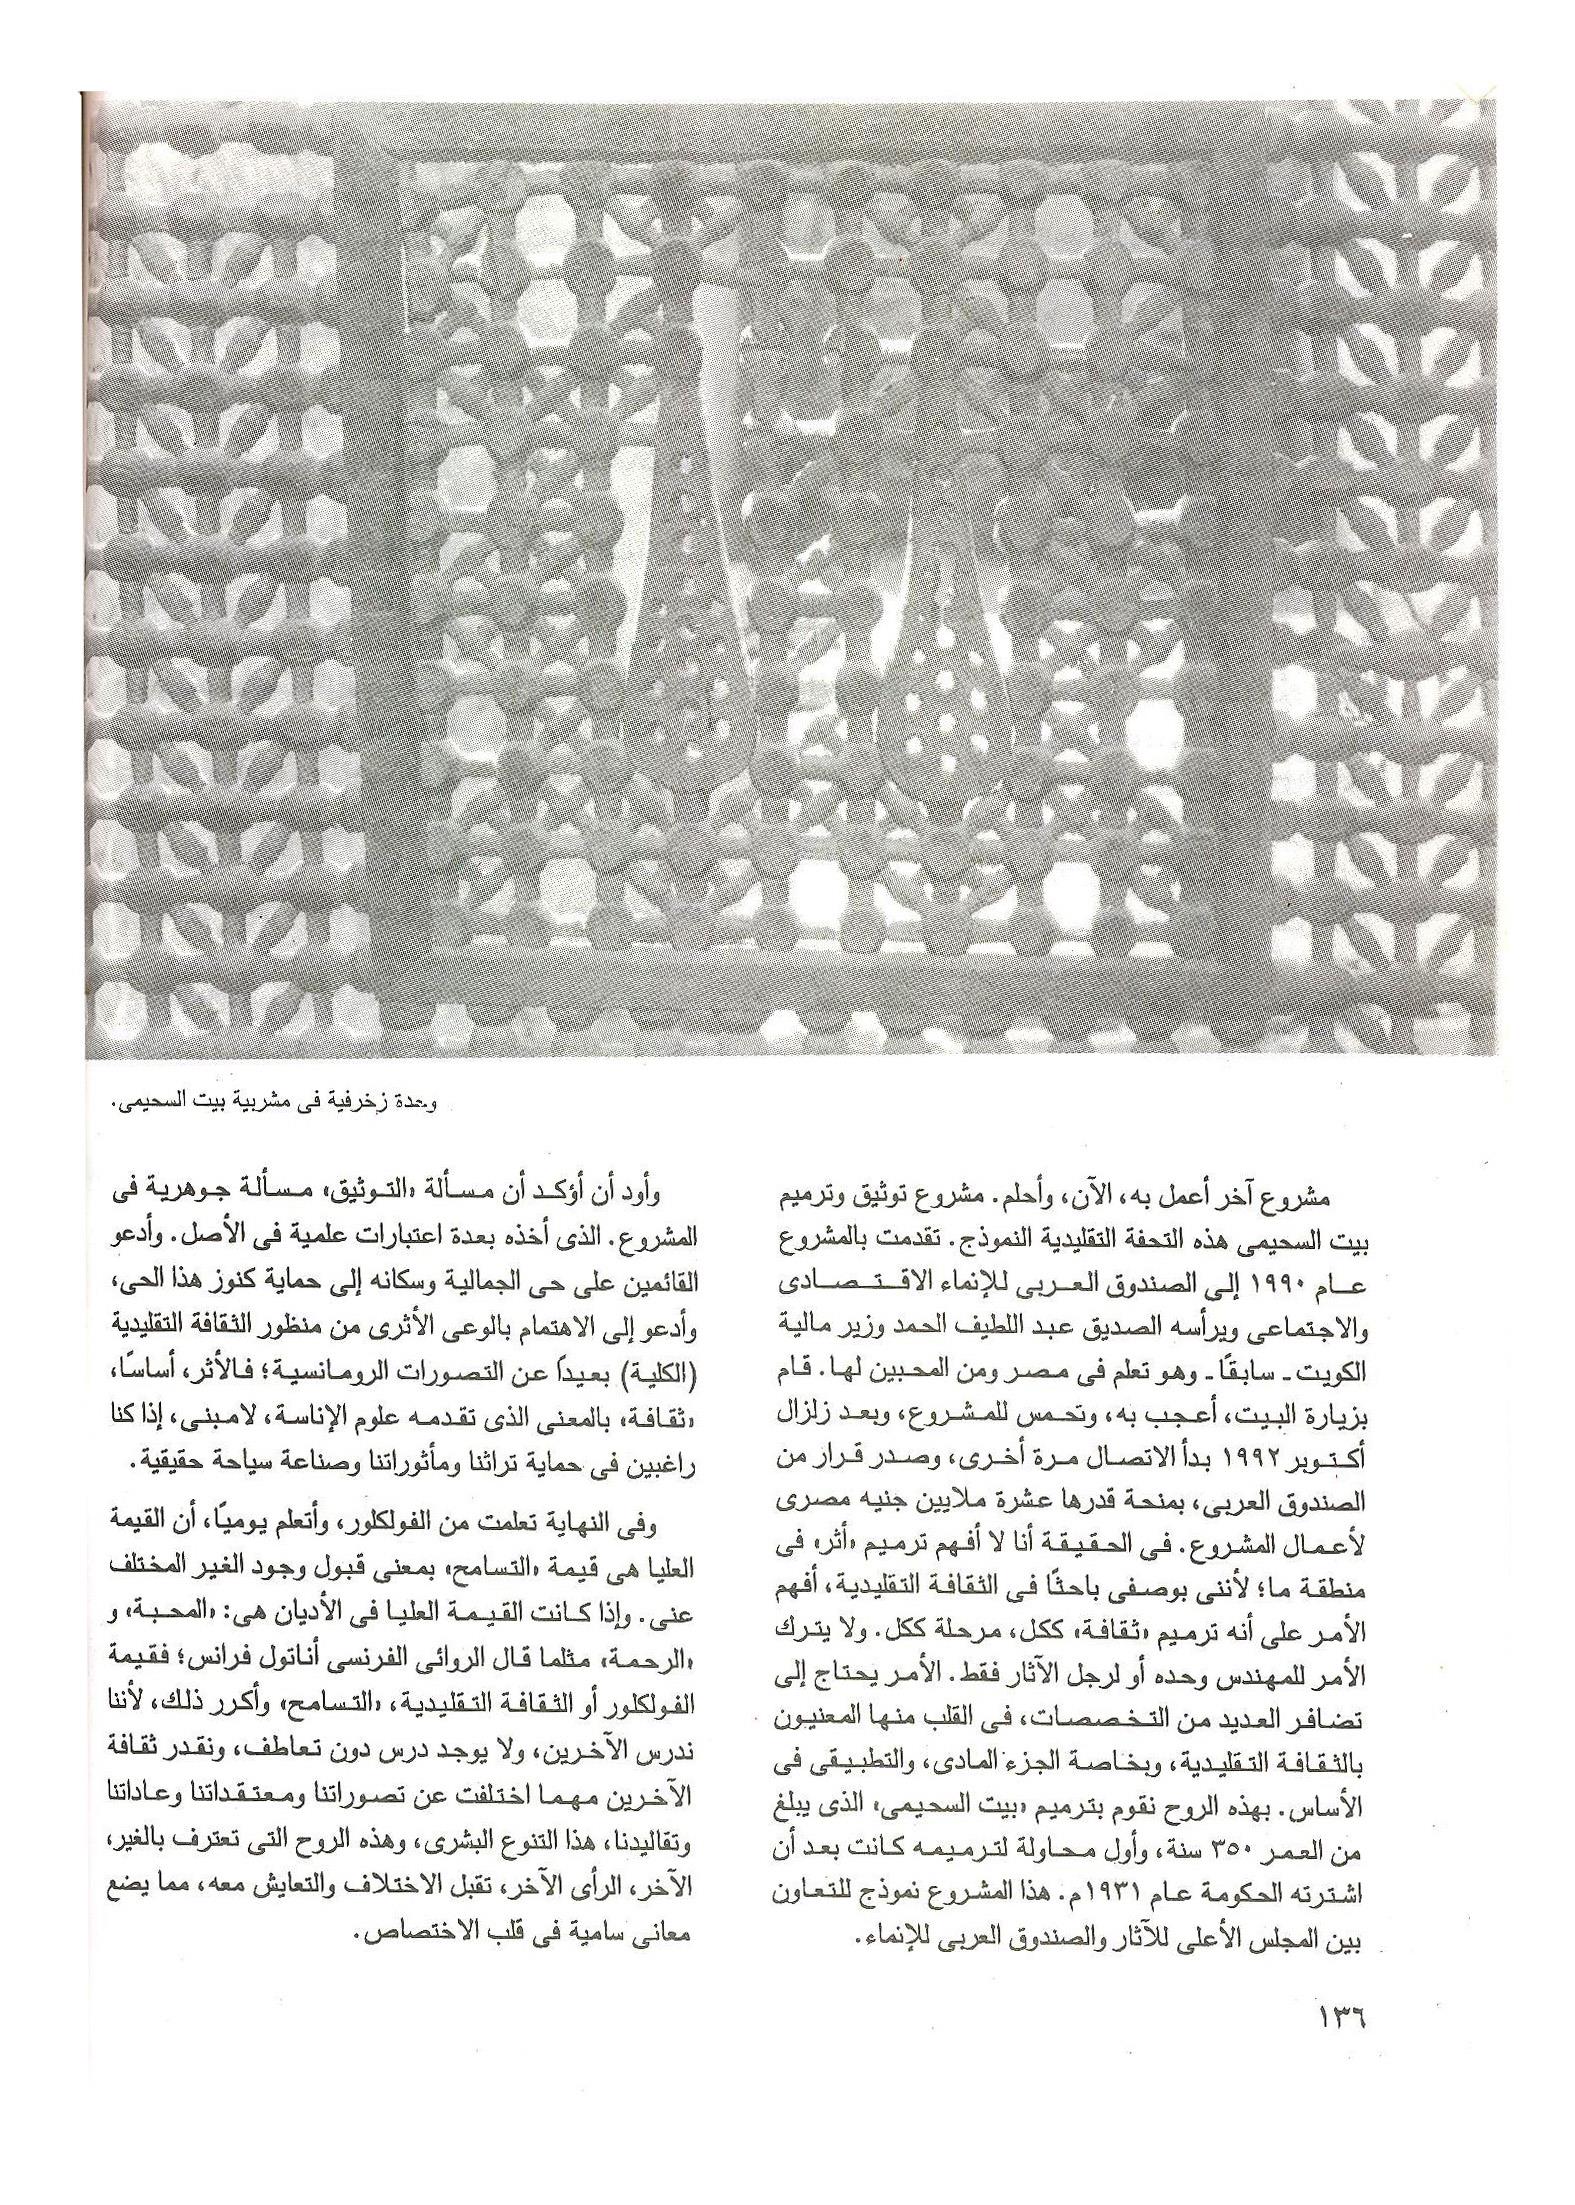 وحدة زخرفية فى مشربية بيت السحيمى.
مشروع آخر أعمل به، الآن، وأحلم. مشروع توثيق وترميم
بيت السحيمى هذه التحفة التقليدية النموذج. تقدمت بالمشروع
عام ١٩٩٠ إلى الصندوق العربى للإنماء الاقتصادى
والاجتماعى ويرأسه الصديق عبد اللطيف الحمد وزير مالية
الكويت - سابقًا - وهو تعلم فى مصر ومن المحبين لها. قام
بزيارة البيت، أعجب به، وتحمس للمشروع، وبعد زلزال
أكتوبر ١٩٩٢ بدأ الاتصال مرة أخرى، وصدر قرار من
الصندوق العربى، بمنحة قدرها عشرة ملايين جنيه مصرى
لأعمال المشروع. فى الحقيقة أنا لا أفهم ترميم «أثر» فى
منطقة ما؛ لأننى بوصفى باحثًا فى الثقافة التقليدية، أفهم
الأمر على أنه ترميم «ثقافة» ككل، مرحلة ككل. ولا يترك
الأمر للمهندس وحده أو لرجل الآثار فقط. الأمر يحتاج إلى
تضافر العديد من التخصصات، فى القلب منها المعنيون
بالثقافة التقليدية، وبخاصة الجزء المادى، والتطبيقى فى
الأساس. بهذه الروح نقوم بترميم «بيت السحيمى» الذى يبلغ
من العمر ٣٥٠ سنة، وأول محاولة لترميمه كانت بعد أن
اشترته الحكومة عام ١٩٣١م. هذا المشروع نموذج للتعاون
بين المجلس الأعلى للآثار والصندوق العربى للإنماء.
وأود أن أؤكد أن مسألة «التوثيق» مسألة جوهرية فى
المشروع. الذى أخذه بعدة اعتبارات علمية فى الأصل. وأدعو
القائمين على حى الجمالية وسكانه إلى حماية كنوز هذا الحى،
وأدعو إلى الاهتمام بالوعى الأثرى من منظور الثقافة التقليدية
(الكلية) بعيداً عن التصورات الرومانسية؛ فالأثر، أساسًا،
«ثقافة» بالمعنى الذى تقدمه علوم الإناسة، لامبنى، إذا كنا
راغبين فى حماية تراثنا ومأثوراتنا وصناعة سياحة حقيقية.
وفى النهاية تعلمت من الفولكلور، وأتعلم يوميًا، أن القيمة
العليا هى قيمة «التسامح» بمعنى قبول وجود الغير المختلف
عنى. وإذا كانت القيمة العليا فى الأديان هى: «المحبة» و
«الرحمة» مثلما قال الروائى الفرنسى أناتول فرانس؛ فقيمة
الفولكلور أو الثقافة التقليدية، «التسامح» وأكرر ذلك، لأننا
ندرس الآخرين، ولا يوجد درس دون تعاطف، ونقدر ثقافة
الآخرين مهما اختلفت عن تصوراتنا ومعتقداتنا وعاداتنا
وتقاليدنا، هذا التنوع البشرى، وهذه الروح التى تعترف بالغير،
الآخر، الرأى الآخر، تقبل الاختلاف والتعايش معه، مما يضع
معانى سامية فى قلب الاختصاص.
١٣٦